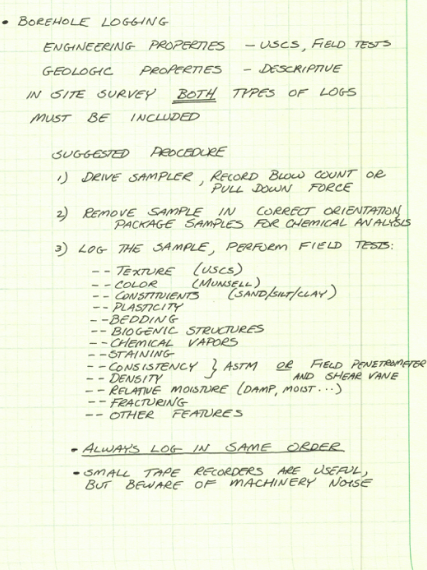 • BOREHOLE LOGGING
ENGINEERING PROPERTIES - USCS, FIELD TESTS
GEOLOGIC PROPERTIES - DESCRIPTIVE
IN SITE SURVEY BOTH TYPES OF LOGS
MUST BE INCLUDED
SUGGESTED PROCEDURE
1) DRIVE SAMPLER, RECORD BLOW COUNT OR
PULL DOWN FORCE
2) REMOVE SAMPLE IN CORRECT ORIENTATION,
PACKAGE SAMPLES FOR CHEMICAL ANALYSIS
3) LOG THE SAMPLE, PERFORM FIELD TESTS:
-- TEXTURE (USCS)
-- COLOR (MUNSELL)
-- CONSTITUENTS (SAND/SILT/CLAY)
-- PLASTICITY
-- BEDDING
-- BIOGENIC STRUCTURES
-- CHEMICAL VAPORS
-- STAINING
-- CONSISTENCY } ASTM OR FIELD PENETROMETER
-- DENSITY AND SHEAR VANE
-- RELATIVE MOISTURE (DAMP, MOIST...)
-- FRACTURING
-- OTHER FEATURES
• ALWAYS LOG IN SAME ORDER
• SMALL TAPE RECORDERS ARE USEFUL,
BUT BEWARE OF MACHINERY NOISE